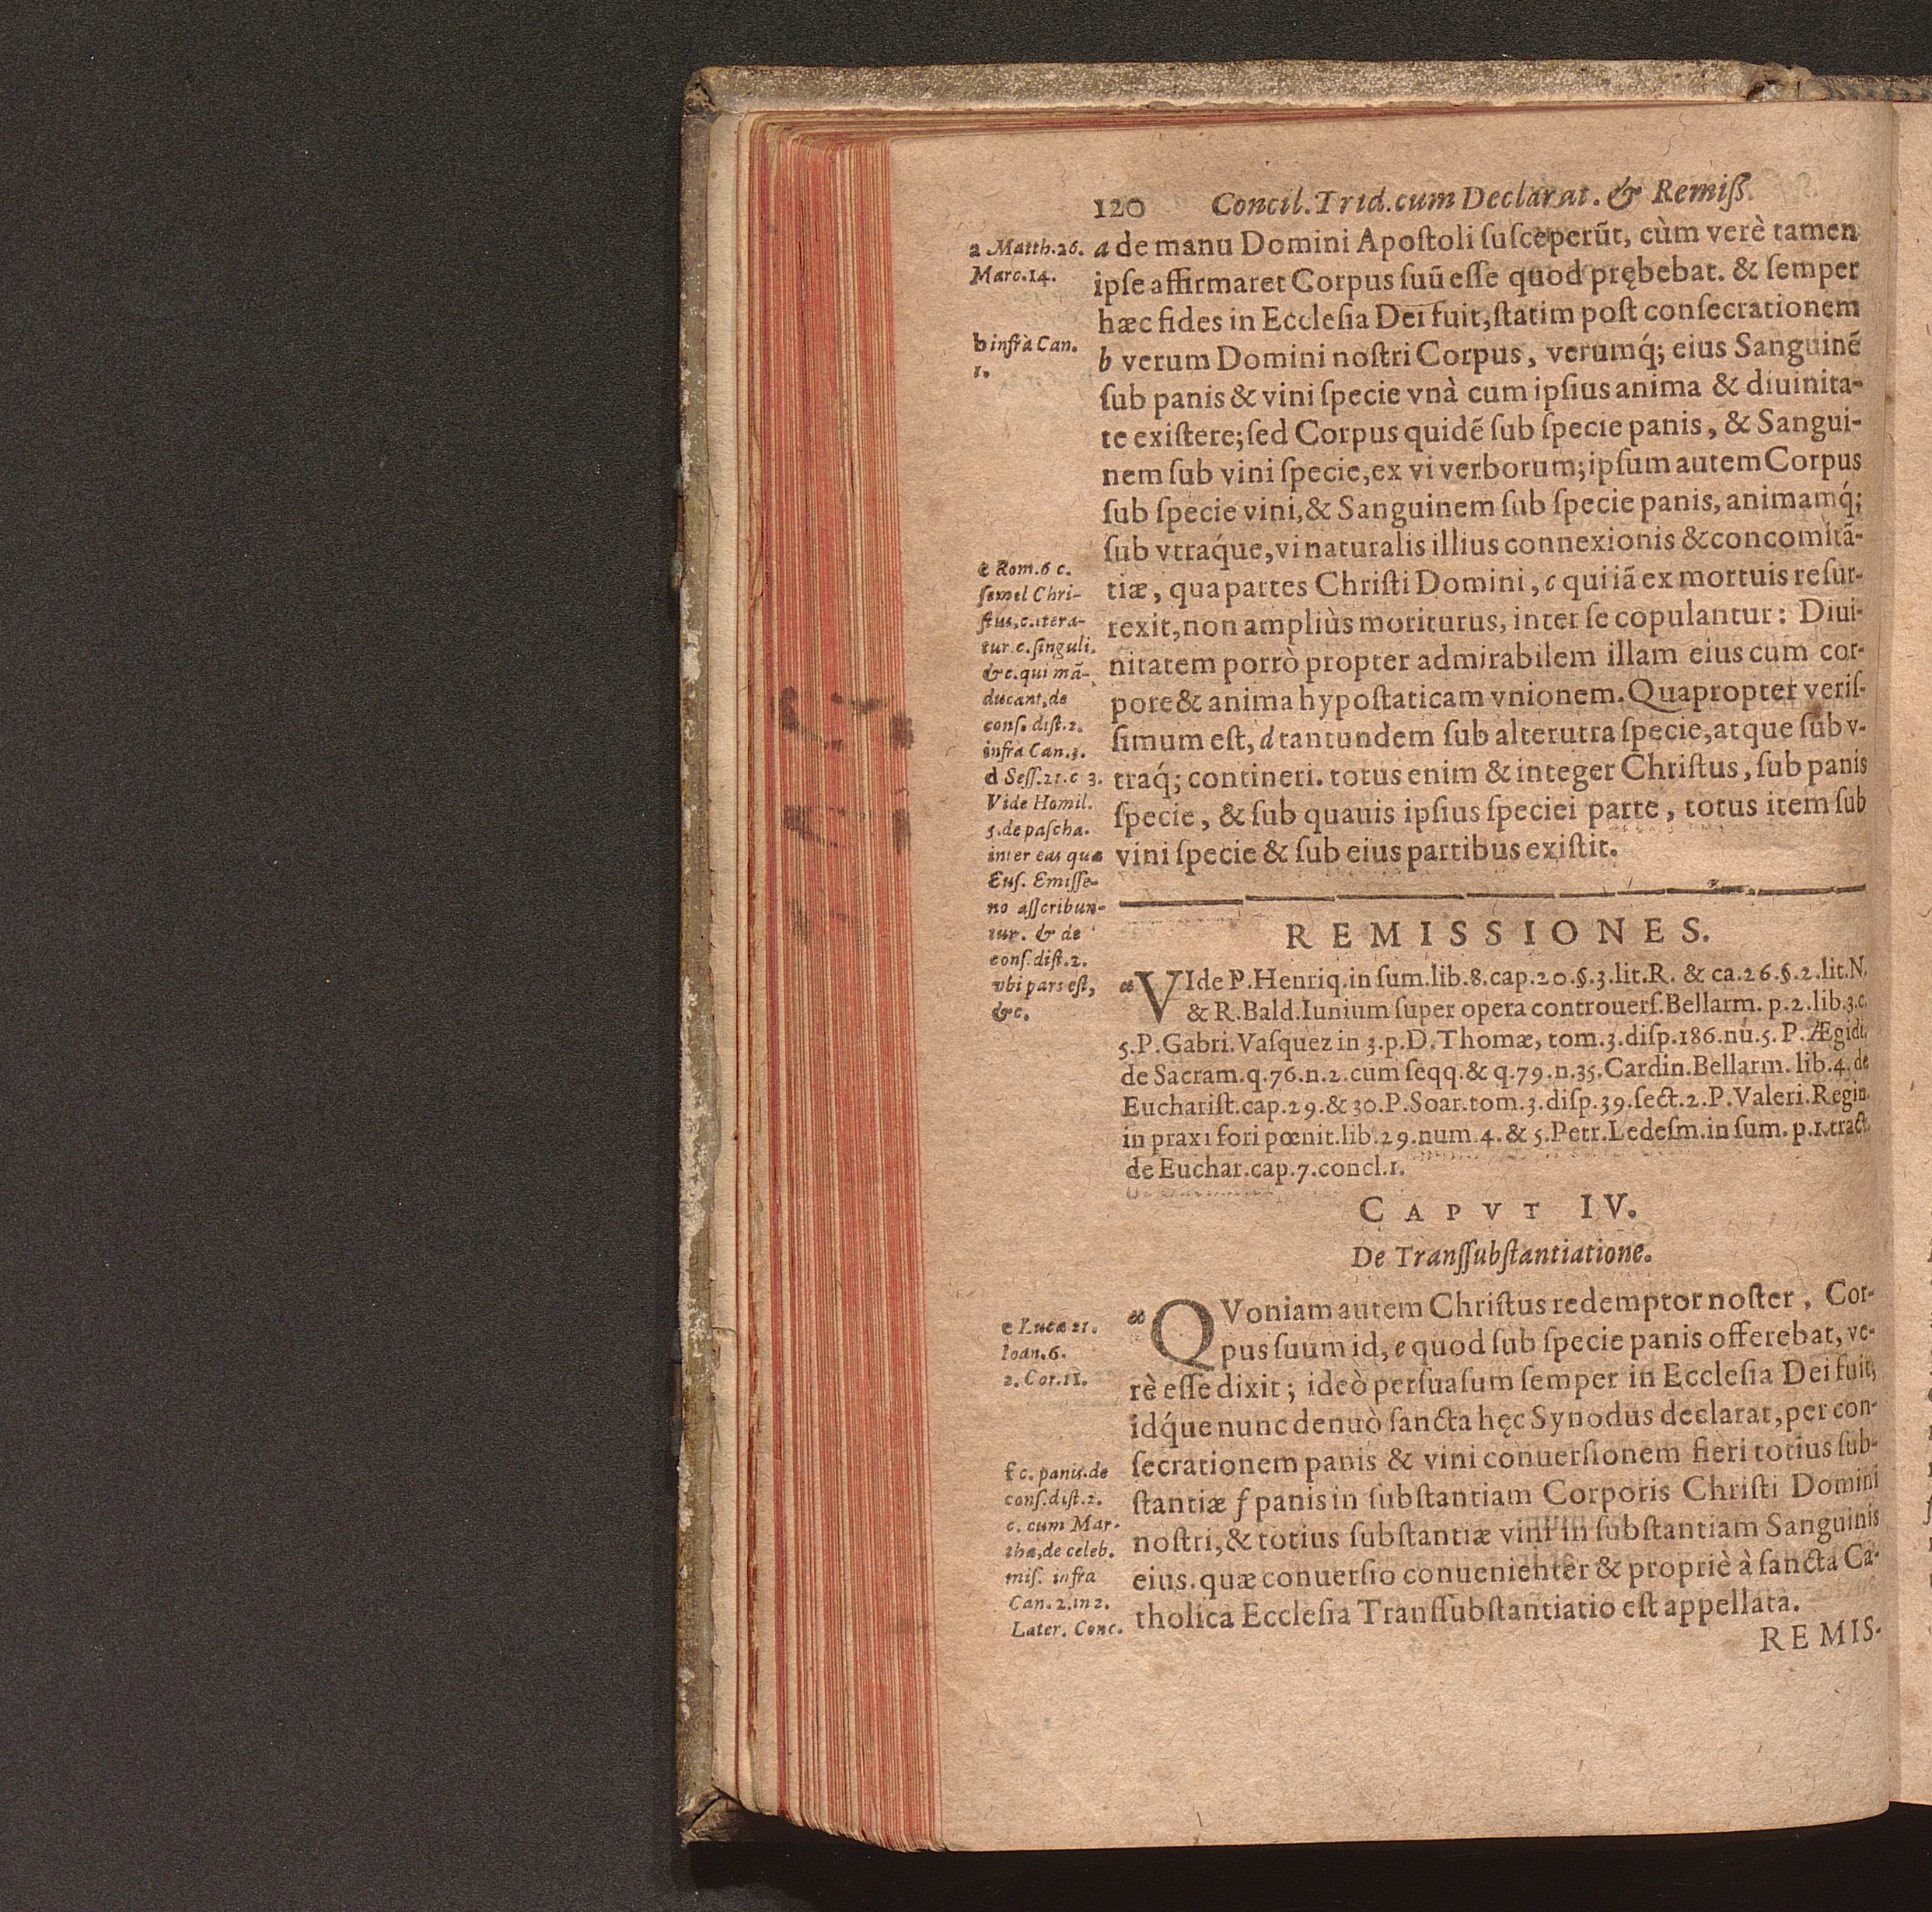 120 Concil. Trid. cum Declarat. & Remiſſ.
a Matth. 26.
Marc. 14.
b infrà Can.
1.
c Rom. 6 c.
ſemel Chri-
ſtus, c. itera-
tur. c. ſinguli.
& c. qui mã-
ducant, de
conſ. diſt. 2.
infrà Can. 3.
d Seſſ. 21. c 3.
Vide Homil.
5. de paſcha.
inter eas quæ
Euſ. Emiſſe-
no aſſcribun-
tur. & de
conſ. diſt. 2.
vbi pars eſt,
&c.
a de manu Domini Apoſtoli ſuſceperũt, cùm verè tamen
ipſe affirmaret Corpus ſuũ eſſe quod prębebat. & ſemper
hæc fides in Eccleſia Dei fuit, ſtatim poſt conſecrationem
b verum Domini noſtri Corpus, verumq́; eius Sanguinẽ
ſub panis & vini ſpecie vnà cum ipſius anima & diuinita-
te exiſtere; ſed Corpus quidẽ ſub ſpecie panis, & Sangui-
nem ſub vini ſpecie, ex vi verborum; ipſum autem Corpus
ſub ſpecie vini, & Sanguinem ſub ſpecie panis, animamq́;
ſub vtraq́ue, vi naturalis illius connexionis & concomitã-
tiæ, qua partes Chriſti Domini, c qui iã ex mortuis reſur-
rexit, non ampliùs moriturus, inter ſe copulantur: Diui-
nitatem porrò propter admirabilem illam eius cum cor-
pore & anima hypoſtaticam vnionem. Quapropter veriſ-
ſimum eſt, d tantundem ſub alterutra ſpecie, atque ſub v-
traq́; contineri. totus enim & integer Chriſtus, ſub panis
ſpecie, & ſub quauis ipſius ſpeciei parte, totus item ſub
vini ſpecie & ſub eius partibus exiſtit.
REMISSIONES.
a VIde P. Henriq. in ſum. lib. 8. cap. 20. §. 3. lit. R. & ca. 26. §. 2. lit. N.
& R. Bald. Iunium ſuper opera controuerſ. Bellarm. p. 2. lib. 3. c.
5. P. Gabri. Vaſquez in 3. p. D. Thomæ, tom. 3. diſp. 186. nú. 5. P. Ægidi.
de Sacram. q. 76. n. 2. cum ſeqq. & q. 79. n. 35. Cardin. Bellarm. lib. 4. de
Euchariſt. cap. 29. & 30. P. Soar. tom. 3. diſp. 39. ſect. 2. P. Valeri. Regin.
in praxi fori pœnit. lib. 29. num. 4. & 5. Petr. Ledeſm. in ſum. p. 1. tract.
de Euchar. cap. 7. concl. 1.
CAPVT IV.
De Tranſſubſtantiatione.
e Lucæ 21.
Ioan. 6.
2. Cor. 11.
f c. panis. de
conſ. diſt. 2.
c. cum Mar-
tha, de celeb.
miſ. infra
Can. 2. in 2.
Later. Conc.
a QVoniam autem Chriſtus redemptor noſter, Cor-
pus ſuum id, e quod ſub ſpecie panis offerebat, ve-
rè eſſe dixit; ideò perſuaſum ſemper in Eccleſia Dei fuit,
idq́ue nunc denuò ſancta hęc Synodus declarat, per con-
ſecrationem panis & vini conuerſionem fieri totius ſub-
ſtantiæ f panis in ſubſtantiam Corporis Chriſti Domini
noſtri, & totius ſubſtantiæ vini in ſubſtantiam Sanguinis
eius. quæ conuerſio conuenienter & propriè à ſancta Ca-
tholica Eccleſia Tranſſubſtantiatio eſt appellata.
REMIS-